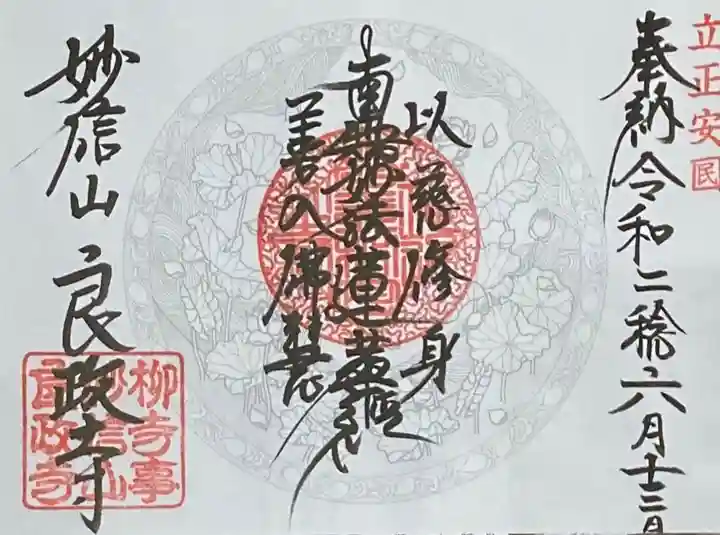 立正安民
奉納 令和二稔六月十二日
以慈修身
南無妙法蓮華経
善入佛慧
妙信山 良政寺
柳寺事
妙信山
良政寺